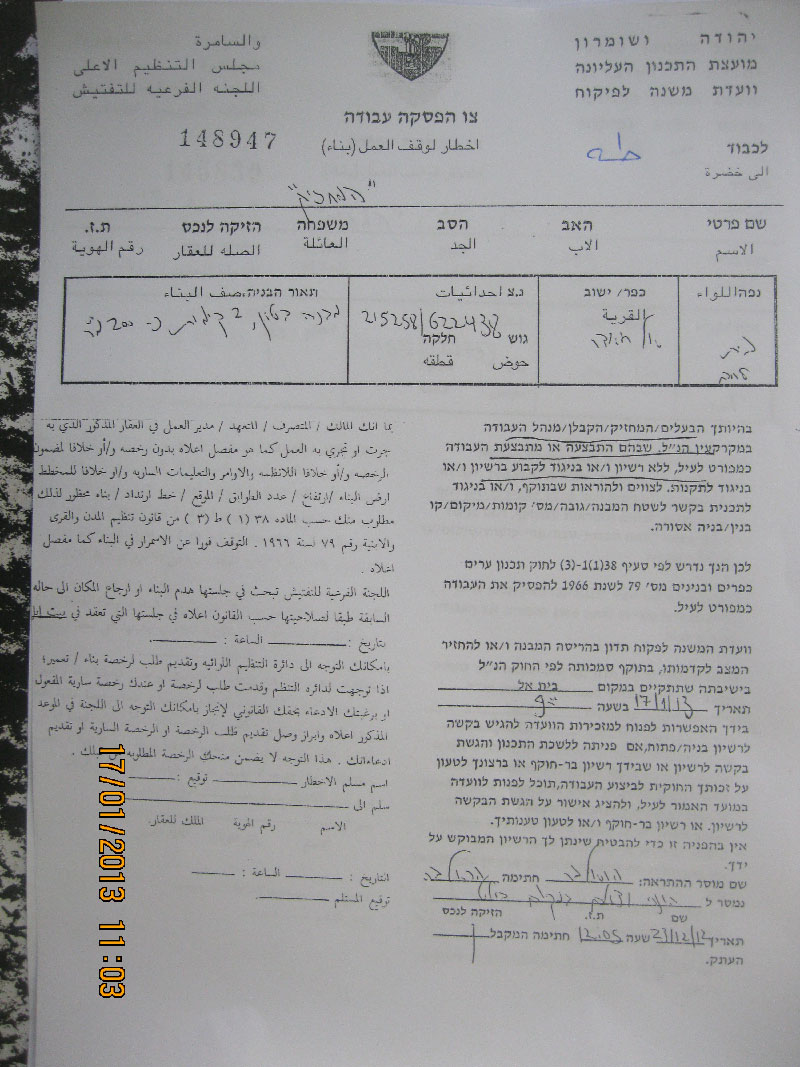 יהודה ושומרון
מועצת התכנון העליונה
וועדת משנה לפיקוח
والسامرة
مجلس التنظيم الاعلى
اللجنه الفرعيه للتفتيش
צו הפסקה עבודה
اخطار لوقف العمل (بناء)
148947
לכבוד
الى حضرة
שם פרטי האב הסב משפחה הזיקה לנכס ת.ז.
الاسم الاب الجد العائلة الصله للعقار رقم الهوية
נפה/اللواء
בית
כפר/ ישוב
القرية
נ.צ احداثيات
215258/622438
גוש חלקה
حوض قطقه
תאור הבניה/وصف البناء
בהיותך הבעלים/המחזיק/הקבלן/מנהל העבודה
במקרקעין הנ"ל, שבהם התבצעה או מתבצעת העבודה
כמפורט לעיל, ללא רשיון ו/או בניגוד לקבוע ברשיון ו/או
בניגוד לתקנות. לצווים ולהוראות שבתוקף, ו/או בניגוד
לתכנית בקשר לשטח המבנה/גובה/מס' קומות/מיקום/קו
בנין/בניה אסורה.
לכן הנך נדרש לפי סעיף 38(1)-(3) לחוק תכנון ערים
כפרים ובנינים מס' 79 לשנת 1966 להפסיק את העבודה
כמפורט לעיל.
וועדת המשנה לפקוח תדון בהריסת המבנה ו/או להחזיר
המצב לקדמותו, בתוקף סמכותה לפי החוק הנ"ל
בישיבתה שתתקיים במקום בית אל
תאריך 17/1/13 בשעה 9
בידך האפשרות לפנות למזכירות הוועדה להגיש בקשה
לרשיון בניה/פתוח, אם פניתה ללשכת התכנון והגשת
בקשה לרשיון או שבידך רשיון בר-תוקף או ברצונך לטעון
על זכותך החוקית לביצוע העבודה, תוכל לפנות לוועדה
במועד האמור לעיל, ולהציג אישור על הגשת הבקשה
לרשיון. או רשיון בר-תוקף ו/או לטעון טענותיך.
אין בהפניה זו כדי להבטיח שינתן לך הרשיון המבוקש על
ידך.
שם מוסר ההתראה: חתימה
נמסר ל
שם ת.ז. הזיקה לנכס
תאריך 23/12/12 שעה 12:05 חתימה המקבל
העתק.
بما انك المالك / المتصرف / المتعهد / مدير العمل في العقار المذكور الذي به
جرت او تجري به العمل كما هو مفصل اعلاه بدون رخصه و/أو خلافا لمضمون
الرخصه و/أو خلافا للانظمه والاوامر والتعليمات الساريه و/او خلافا للمخطط
ارض البناء /ارتفاع / عدد الطوابق / الموقع / خط ارتداد / بناء محظور لذلك
مطلوب منك حسب الماده ٣٨ (١) ط (٣) من قانون تنظيم المدن والقرى
والابنية رقم ٧٩ لسنة ١٩٦٦ . التوقف فورا عن الاسمرار في البناء كما مفصل
اعلاه .
اللجنة الفرعية للتفتيش تبحث في جلستها هدم البناء او ارجاع المكان الى حاله
السابقة طبقا لتصلاحيتها حسب القانون اعلاه في جلستها التي تعقد في بيت ايل
بتاريخ : الساعة :
بامكانك التوجه الى دائرة التنظيم اللوائيه وتقديم طلب لرخصة بناء / تعمير؛
اذا توجهت لدائره التنظم وقدمت طلب لرخصة او عندك رخصة سارية المفعول
او برغبتك الادعاء بحقك القانوني لإنجاز بامكانك التوجه الى اللجنة في الموعد
المذكور اعلاه وابراز وصل تقديم طلب الرخصة او الرخصة السارية او تقديم
ادعاءاتك . هذا التوجه لا يضمن منحك الرخصة المطلوبه
اسم مسلم الاخطار توقيع :
سلم الى
الاسم رقم الهوية المالك للعقار.
التاريخ : الساعة :
توقيع المستلم
17/01/2013 11:03